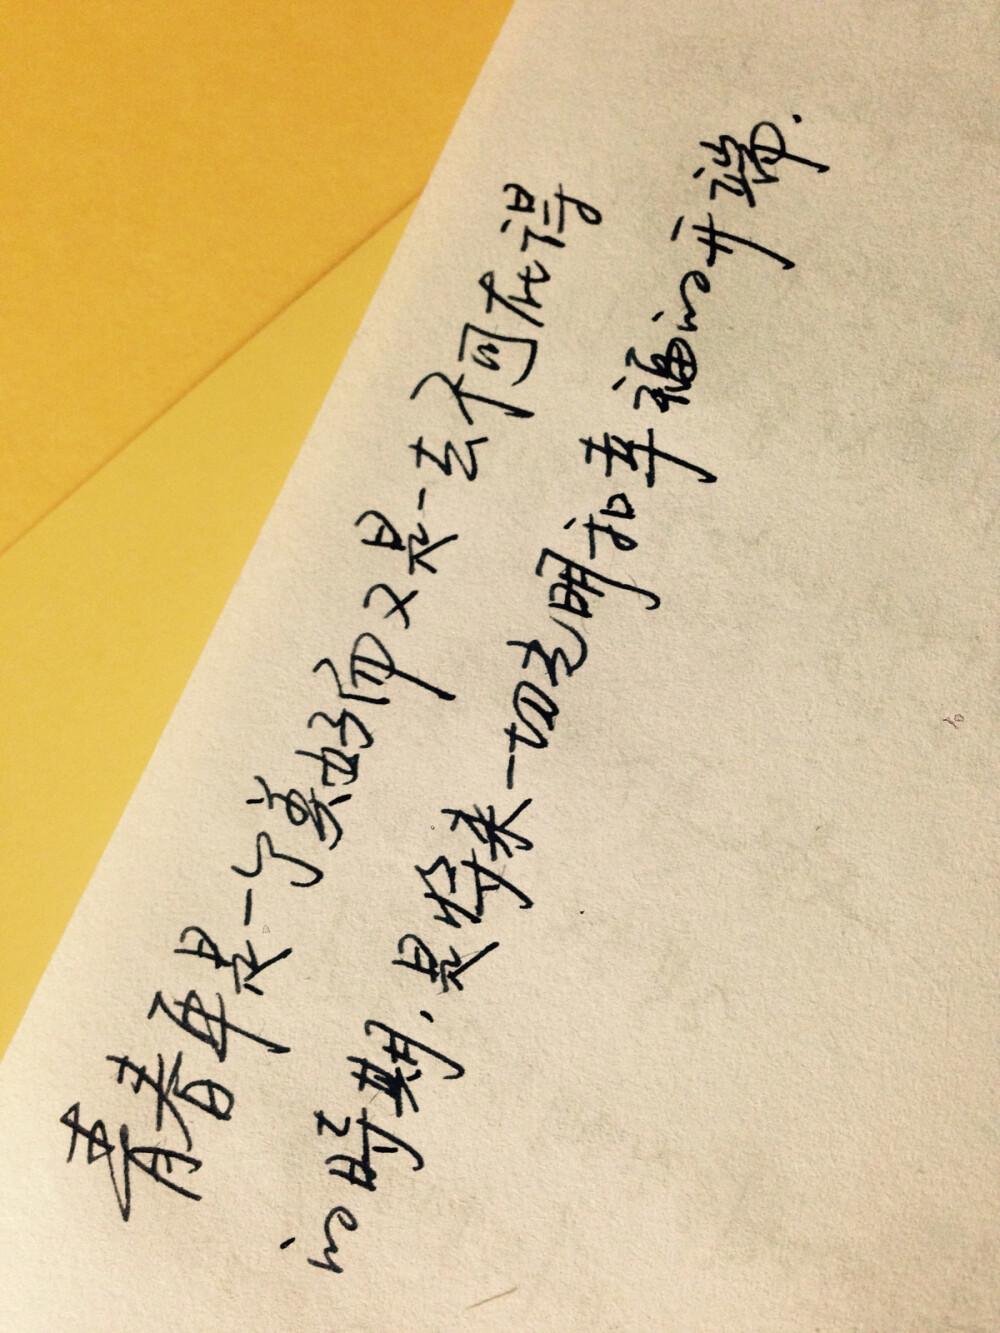 青春年是一个美好而又是一去不可在得
的时期.是将来一切光明和幸福的开端.